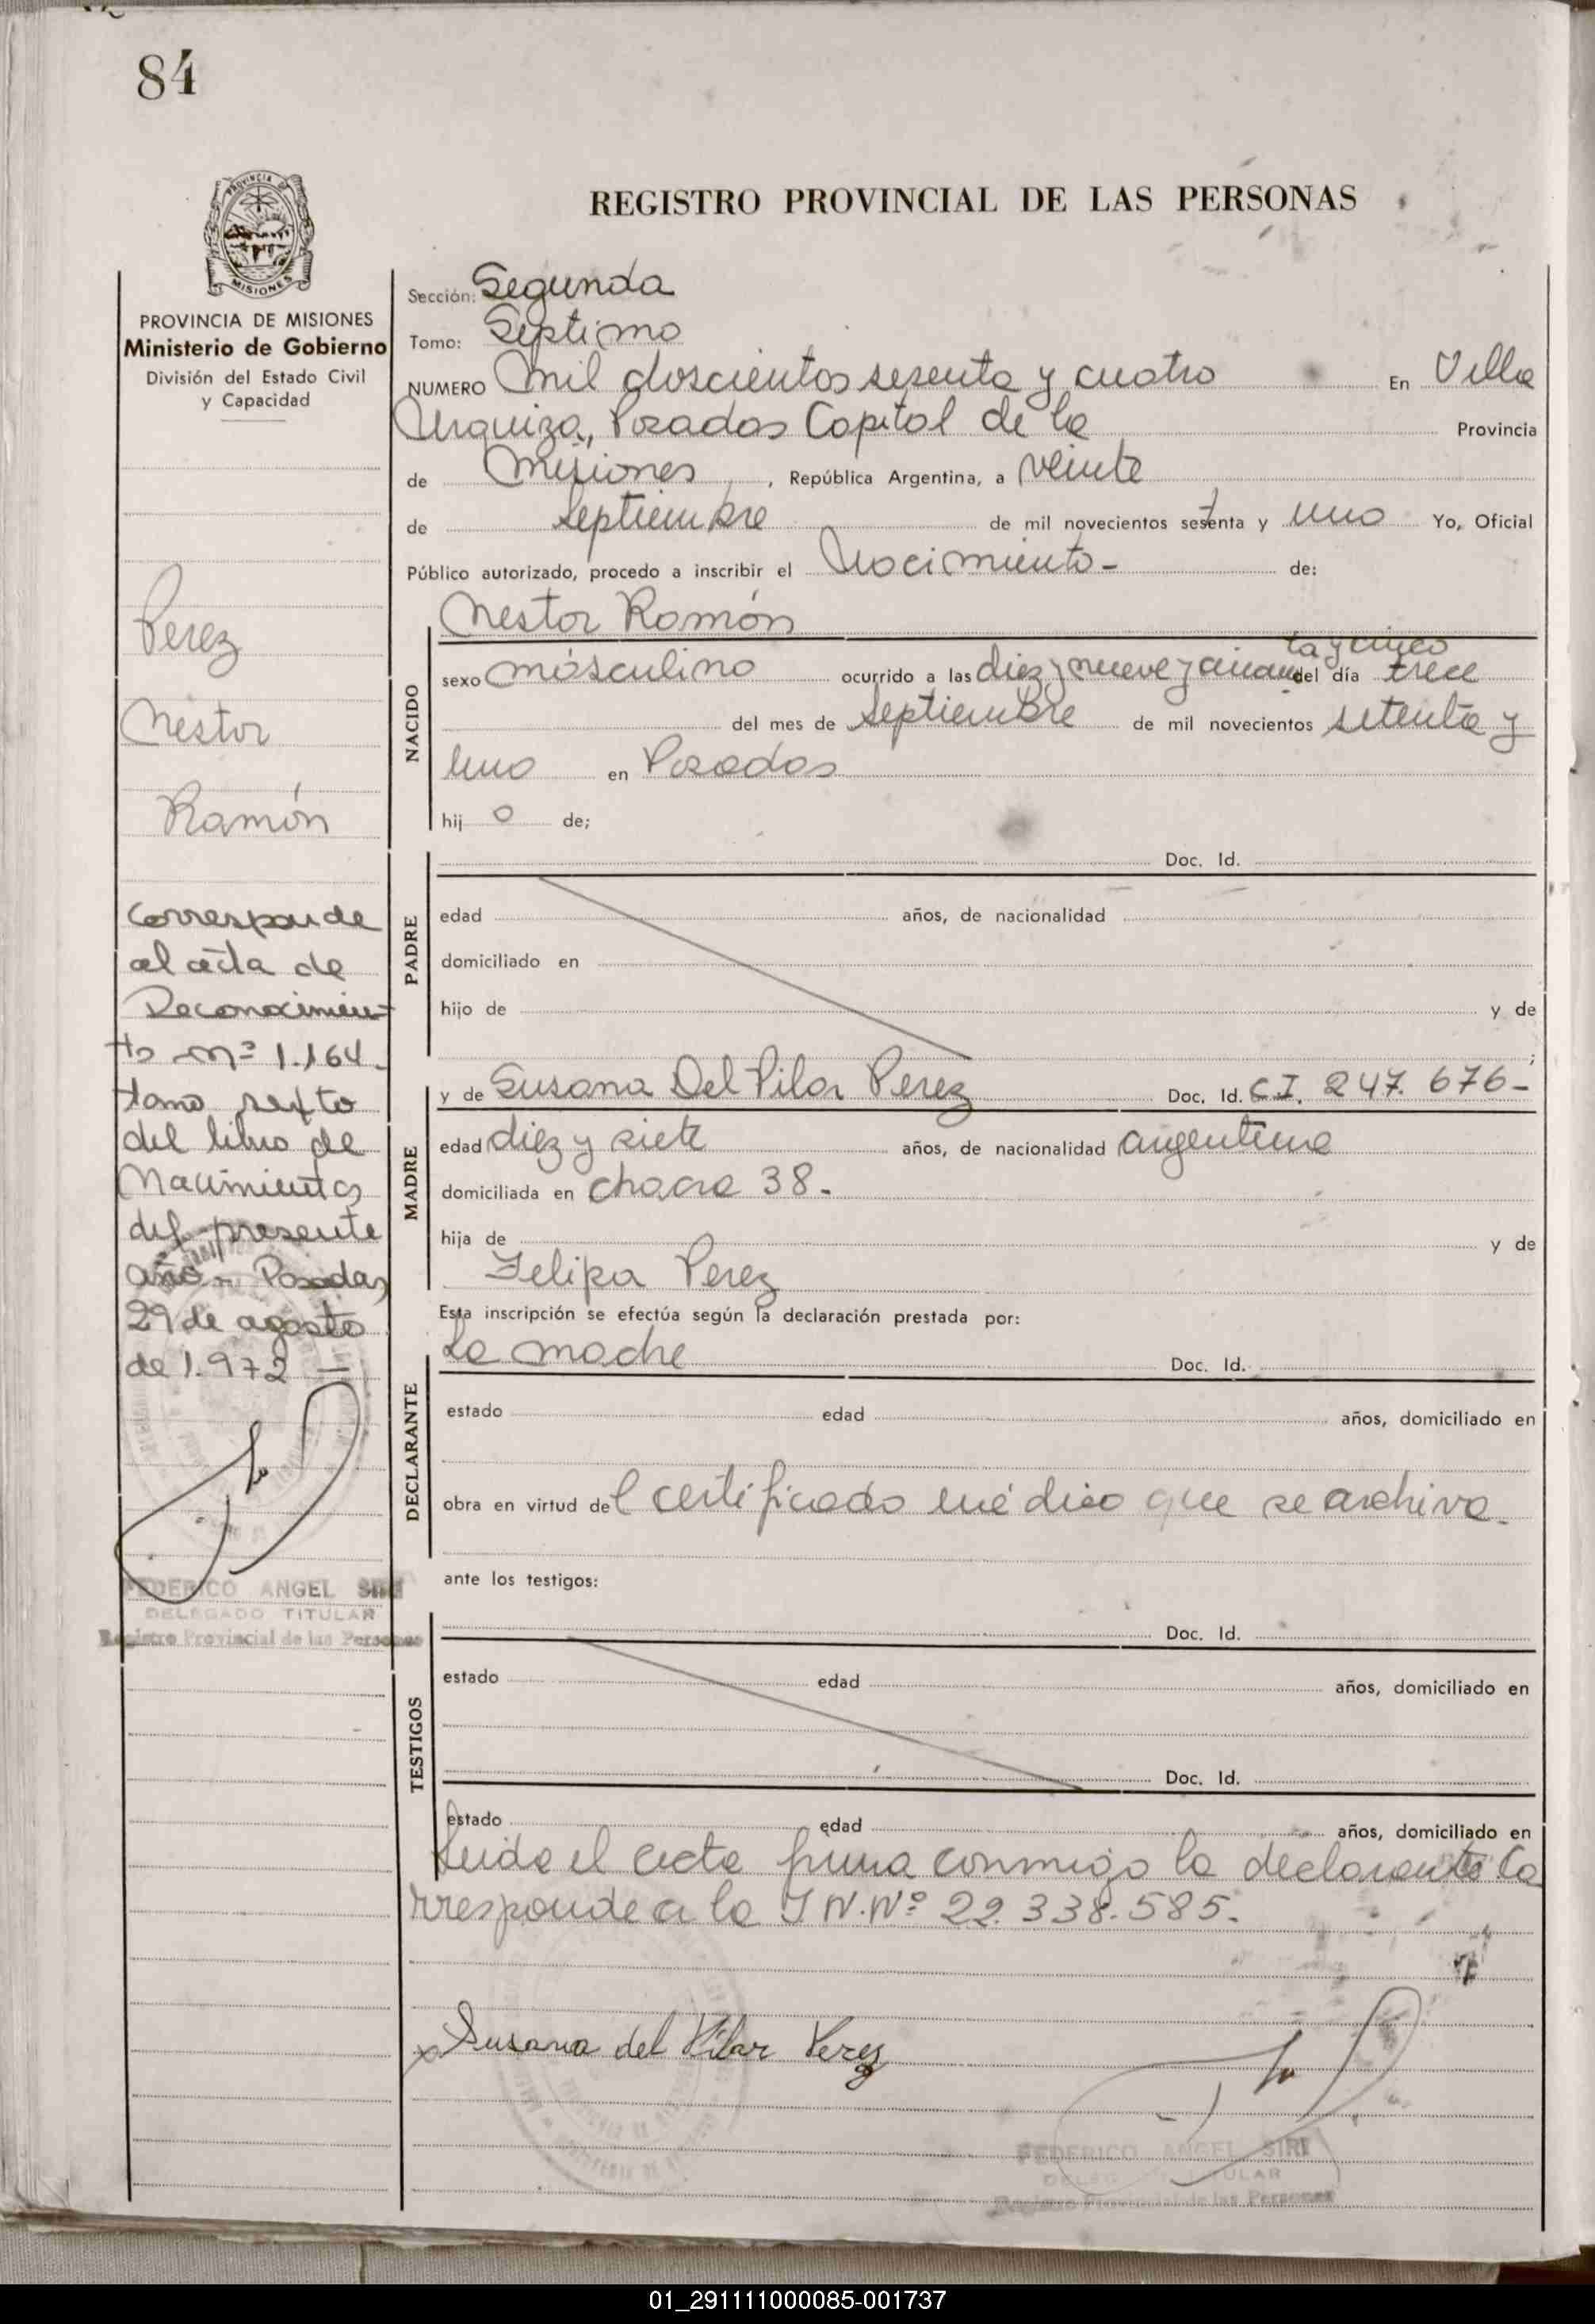 84
PROVINCIA DE
MISIONES
PROVINCIA DE MISIONES
Ministerio de Gobierno
División del Estado Civil
y Capacidad
Perez
Nestor
Ramón
Corresponde
al acta de
Reconocimien-
to nº 1.164.
tomo sexto
del libro de
Nacimientos
del presente
año - Posadas,
29 de agosto
de 1.972 —
FEDERICO ANGEL SIRI
DELEGADO TITULAR
Registro Provincial de las Personas
REGISTRO PROVINCIAL DE LAS PERSONAS
Sección: Segunda
Tomo: Septimo
NUMERO Mil doscientos sesenta y cuatro En Villa
Urquiza, Posadas Capital de la Provincia
de Misiones, República Argentina, a veinte
de Septiembre de mil novecientos setenta y uno Yo, Oficial
Público autorizado, procedo a inscribir el Nacimiento - de:
Nestor Ramón
NACIDO
ta y cinco
sexo másculino ocurrido a las diez y nueve y cincuen del día trece
del mes de Septiembre de mil novecientos setenta y
uno en Posadas
hij o de;
PADRE
Doc. Id.
edad años, de nacionalidad
domiciliado en
hijo de y de
;
MADRE
y de Susana Del Pilar Perez Doc. Id. C.I. 247.676-
edad diez y siete años, de nacionalidad argentina
domiciliada en chacra 38.
hija de y de
Felipa Perez
Esta inscripción se efectúa según la declaración prestada por:
DECLARANTE
La madre Doc. Id.
estado edad años, domiciliado en
obra en virtud del certificado médico que se archiva.
ante los testigos:
TESTIGOS
Doc. Id.
estado edad años, domiciliado en
Doc. Id.
estado edad años, domiciliado en
Leida el acta firma conmigo la declarante Co
rresponde a la I N. Nº 22.338.585.
x Susana del Pilar Perez
FEDERICO ANGEL SIRI
Registro Provincial de las Personas
01_291111000085-001737